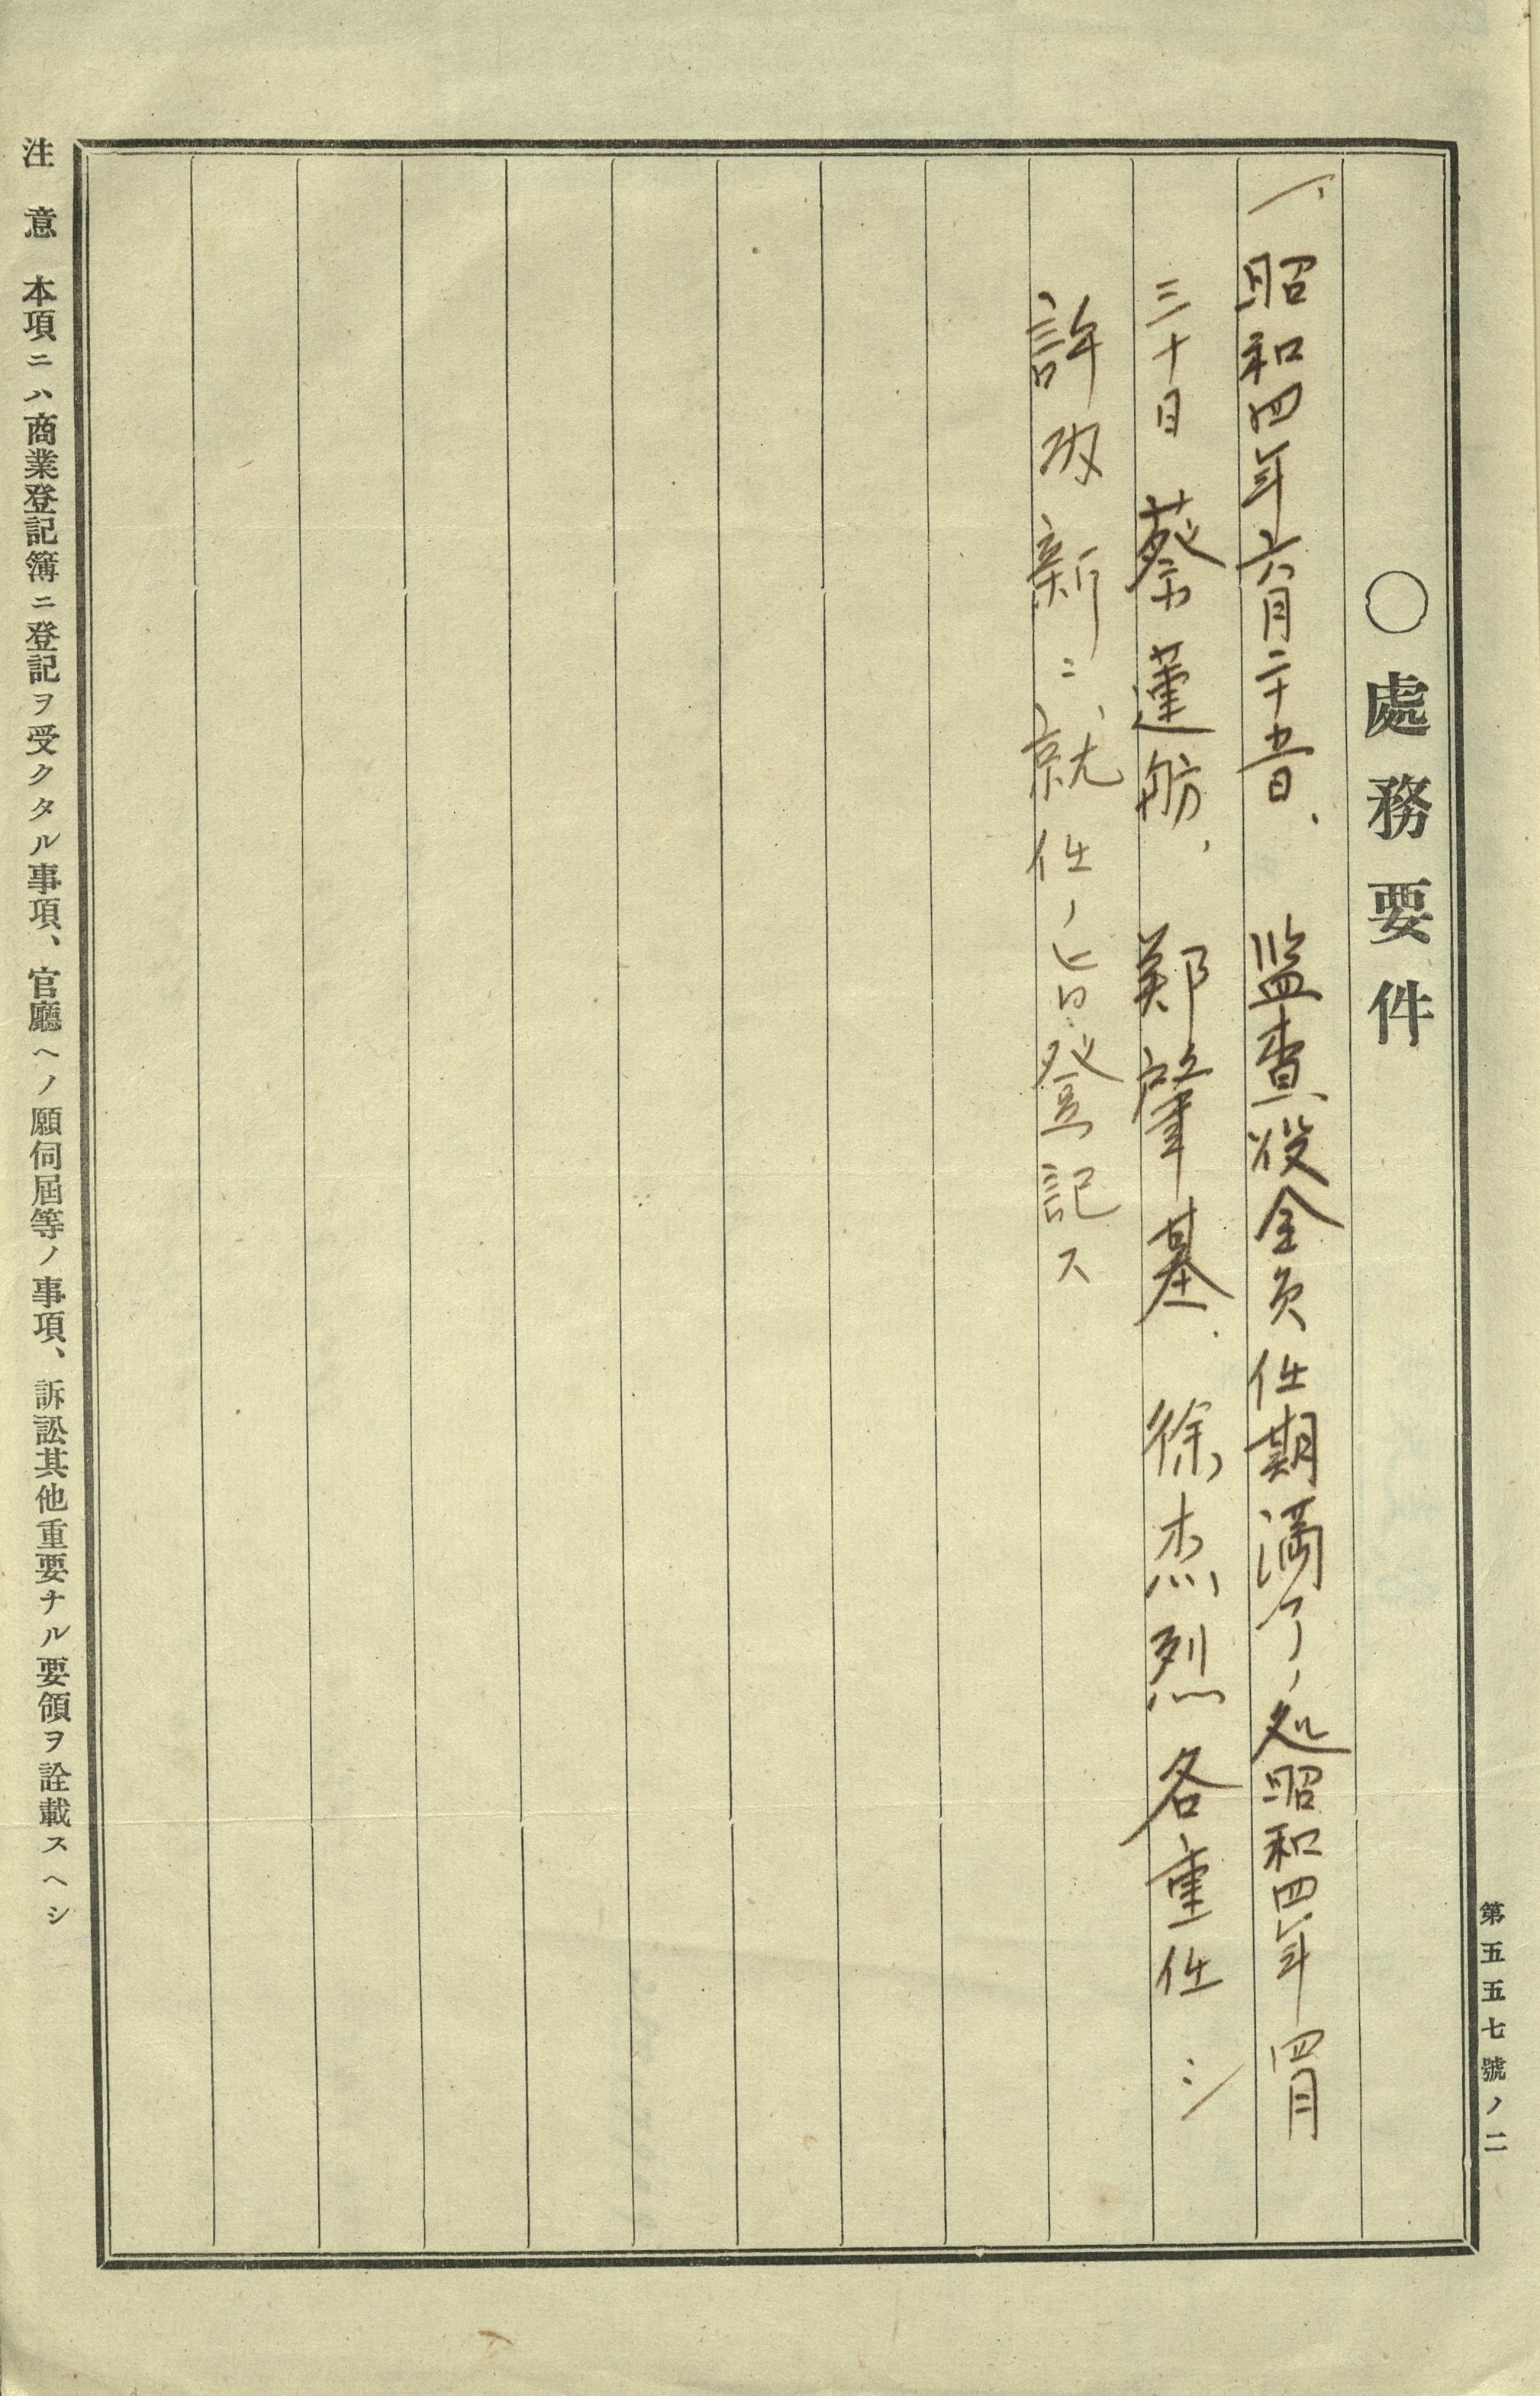 第五五七號ノ二
○處務要件
一、昭和四年六月二十五日、監査役全員任期満了ノ処昭和四年四月
三十日蔡蓮舫、鄭肇基、徐杰烈各重任シ
許攻新ニ就任ノ旨登記ス
注意 本項ニハ商業登記簿ニ登記ヲ受クタル事項、官廳ヘノ願伺屆等ノ事項、訴訟其他重要ナル要領ヲ詮載スヘシ